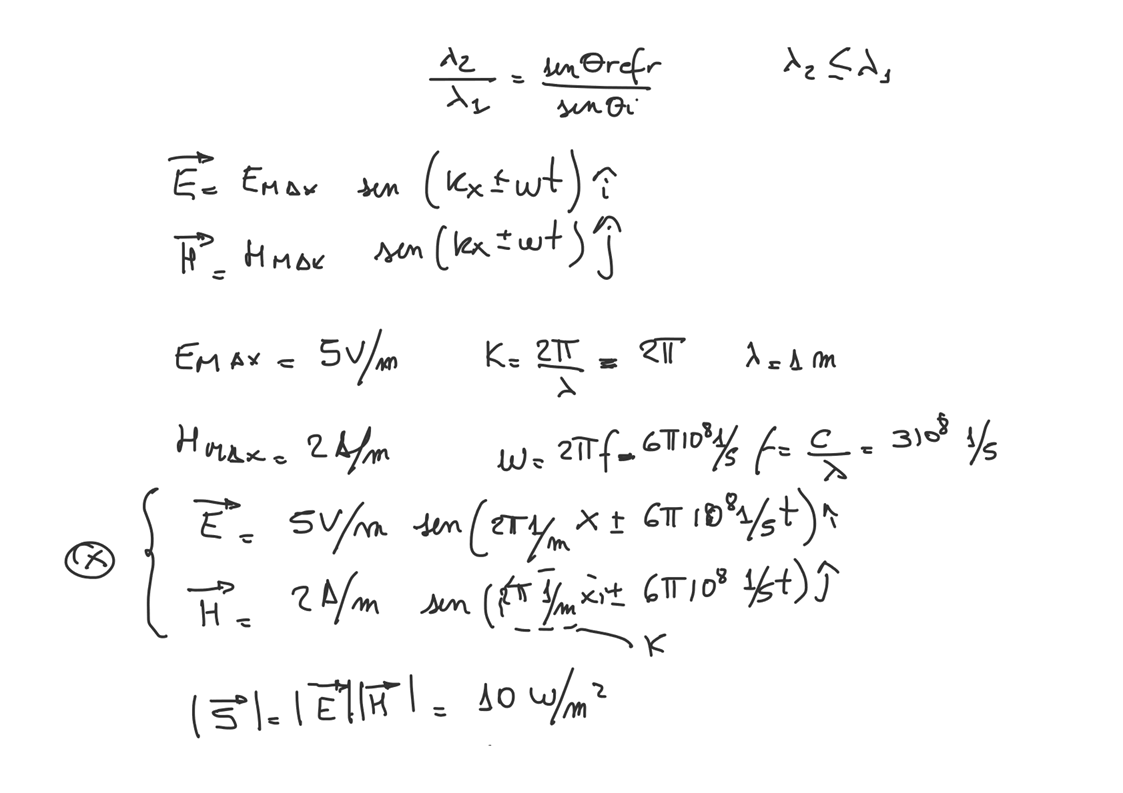 λ2/λ1 = senθrefr/senθi λ2 ≤ λ1
E⃗ = EMAX sen (kx ± ωt) î
H⃗ = HMAX sen (kx ± ωt) ĵ
EMAX = 5V/m K = 2π/λ = 2π λ = 1 m
HMAX = 2A/m ω = 2πf = 6π10⁸ 1/s f = c/λ = 310⁸ 1/s
E⃗ = 5V/m sen (2π 1/m x ± 6π 10⁸ 1/s t) î
(x)
H⃗ = 2A/m sen (2π 1/m x ± 6π10⁸ 1/s t) ĵ
K
|S⃗| = |E⃗||H⃗| = 10 W/m²